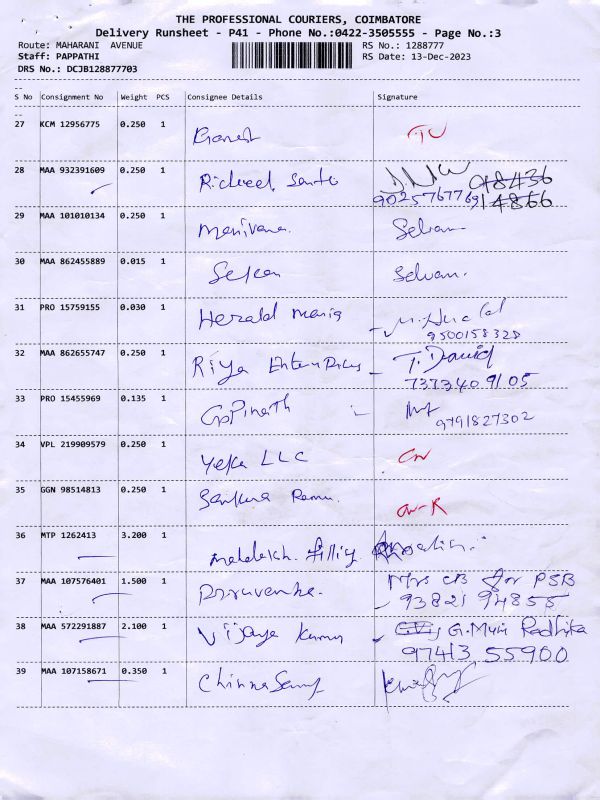 THE PROFESSIONAL COURIERS, COIMBATORE
Delivery Runsheet - P41 - Phone No.:0422-3505555 - Page No.:3
Route: MAHARANI AVENUE RS No.: 1288777
Staff: PAPPATHI RS Date: 13-Dec-2023
DRS No.: DCJB128877703
S No Consignment No Weight PCS Consignee Details Signature
27 KCM 12956775 0.250 1
28 MAA 932391609 0.250 1 Richeel Santo
9025767769 14866
29 MAA 101010134 0.250 1 Manivana. Selvam
30 MAA 862455889 0.015 1 Selvam.
31 PRO 15759155 0.030 1 Herald Maria
9500158328
32 MAA 862655747 0.250 1 Riya Enterprises T. David
7373409105
33 PRO 15455969 0.135 1 Gopinath
9791827302
34 VPL 219909579 0.250 1 Yeka LLC
35 GGN 98514813 0.250 1
36 MTP 1262413 3.200 1
37 MAA 107576401 1.500 1 Mrs CB for PSB
93821 94855
38 MAA 572291887 2.100 1 Vijaya Kumar G. Muni Radhika
97413 55900
39 MAA 107158671 0.350 1 Chinnasamy